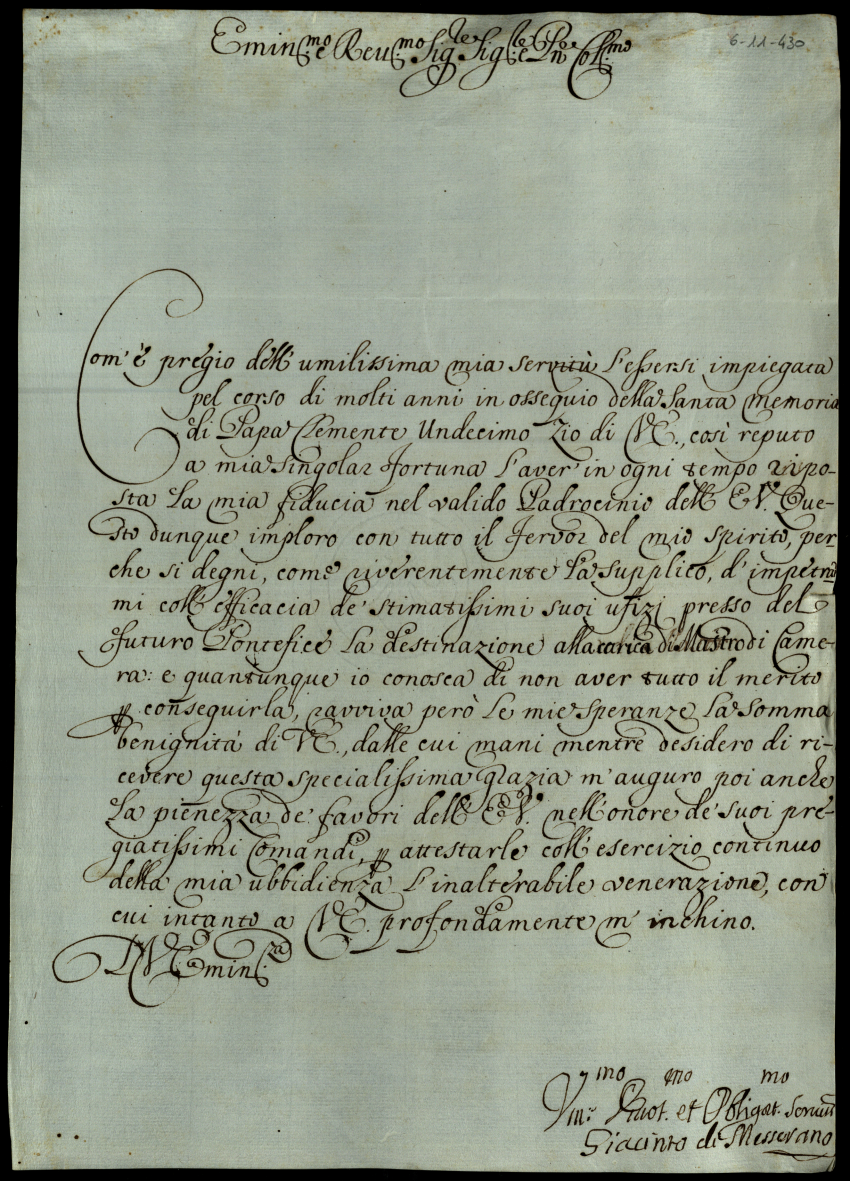 6-11-430
Emin.mo e Reu.mo Sig.re Sig.re e Pne Coll.mo
Com'è pregio dell'umilissima mia servitù l'essersi impiegata
pel corso di molti anni in ossequio della Santa memoria
di Papa Clemente Undecimo Zio di V.E., così reputo
a mia singolar fortuna l'aver in ogni tempo ripo-
sta la mia fiducia nel valido Padrocinio dell'E.V. Que-
sto dunque imploro con tutto il fervor del mio spirito, per
che si degni, come riverentemente la supplico, d'impetrar
mi coll'efficacia de' stimatissimi suoi ufizj presso del
futuro Pontefice la destinazione alla carica di Mastro di Came-
ra: e quantunque io conosca di non aver tutto il merito
p conseguirla, ravviva però le mie speranze la somma
benignità di V.E., dalle cui mani mentre desidero di ri-
cevere questa specialissima grazia m'auguro poi anche
la pienezza de' favori dell'E.V. nell'onore de' suoi pre-
giatissimi Comandi, p attestarle coll'esercizio continuo
della mia ubbidienza l'inalterabile venerazione, con
cui intanto a V.E. profondamente m'inchino.
D V. Emin.za
Vm.mo Diuot.mo et Obligat.mo Seruit
Giacinto di Messerano